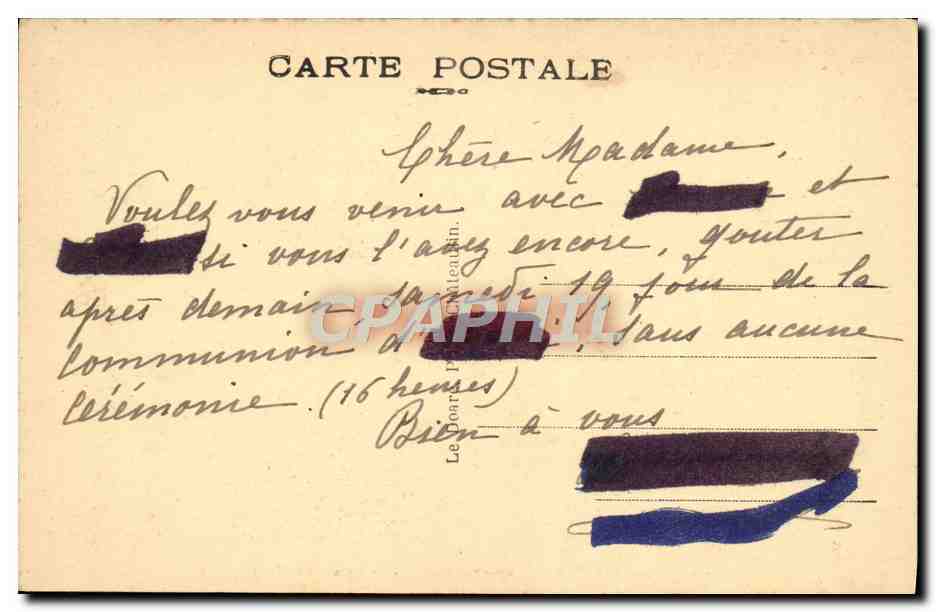 CARTE POSTALE
Chère Madame,
Voulez vous venir avec et
si vous l'avez encore, gouter
après demain, samedi 19 jour de la
communion d' , sans aucune
cérémonie. (16 heures)
Bien à vous
Le Doaré, Châteaulin.
CPAPHIL